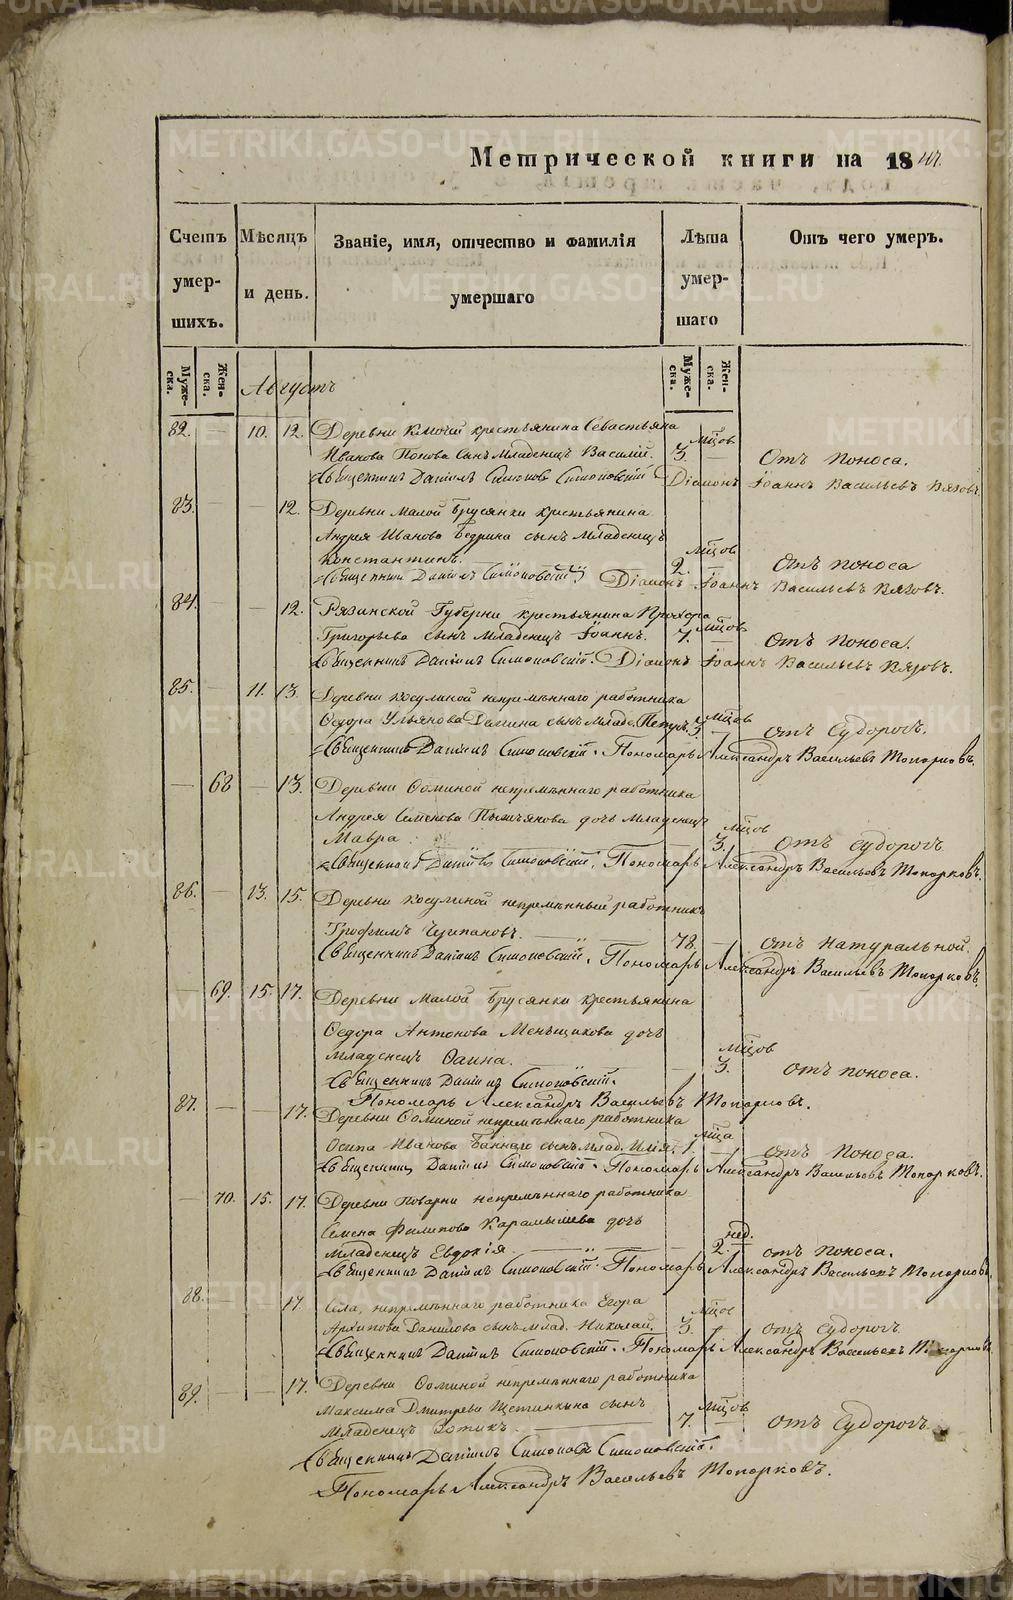 Метрической книги на 18
Счетъ умершихъ.
Мужеска.
Женска.
Мѣсяцъ и день.
Званіе, имя, отчество и фамилія умершаго
Лѣта умершаго
Мужеска.
Женска.
Отъ чего умеръ.
Августъ
82. — 10. 12. Деревни Ключей крестьянина Севастьяна
Иванова Попова сынъ Младенецъ Василій. 3 мцов — Отъ поноса.
Священникъ Даніилъ Симонов Симоновскій Діаконъ Іоаннъ Васильевъ Вязовъ
83. — — 12. Деревни Малой Брусянки крестьянина
Андрея Иванова сынъ Младенецъ
Константинъ. 2. мцов Отъ поноса
Священникъ Даніилъ Симоновскій Діаконъ Іоаннъ Васильевъ Вязовъ.
84. — 12. Рязинской Губерни крестьянина Прохора
Григорьева сынъ Младенецъ Іоаннъ. 7. мцов Отъ поноса.
Священникъ Даніилъ Симоновскій. Діаконъ Іоаннъ Васильевъ Вязовъ.
85. — 11. 13. Деревни Косулиной непремѣннаго работника
Ѳедора Ульянова сынъ Младе. Петръ. 3 мцов отъ судорогъ.
Священникъ Даніилъ Симоновскій. Пономарь Александръ Васильевъ Топорковъ.
— 68 — 13. Деревни Ѳоминой непремѣннаго работника
Андрея Семенова дочь младенецъ
Мавра 3. мцов отъ судорогъ
Священникъ Даніилъ Симоновскій. Пономарь Александръ Васильевъ Топорковъ.
86. — 13. 15. Деревни Косулиной непремѣнный работникъ
Трофимъ Черепановъ. 78. — отъ натуральной.
Священникъ Даніилъ Симоновскій. Пономарь Александръ Васильевъ Топорковъ.
— 69. 15. 17. Деревни Малой Брусянки крестьянина
Ѳедора Антонова Меньщикова дочь
Младенецъ Фаина. — 3. мцов отъ поноса.
Священникъ Даніилъ Симоновскій.
Пономарь Александръ Васильевъ Топорковъ.
87. — — 17. Деревни Ѳоминой непремѣннаго работника
Осипа Иванова сынъ млад. Илія. 1. мца — отъ поноса.
Священникъ Даніилъ Симоновскій. Пономарь Александръ Васильевъ Топорковъ.
— 70. 15. 17. Деревни Поварни непремѣннаго работника
Семена Филипова Карамышева дочь
младенецъ Евдокія. 2. нед. отъ поноса.
Священникъ Даніилъ Симоновскій. Пономарь Александръ Васильевъ Топорковъ
88. — — 17 Села, непремѣннаго работника Егора
Архипова Данилова сынъ млад. Николай. 3. мцов отъ судорогъ
Священникъ Даніилъ Симоновскій. Пономарь Александръ Васильевъ Топорковъ
89. — — 17. Деревни Ѳоминой непремѣннаго работника
Максима Дмитрева Щетинкина сынъ
младенецъ Фотикъ. 7. мцов отъ судорогъ.
Священникъ Даніилъ Симонов Симоновскій.
Пономарь Александръ Васильевъ Топорковъ.
METRIKI.GASO-URAL.RU